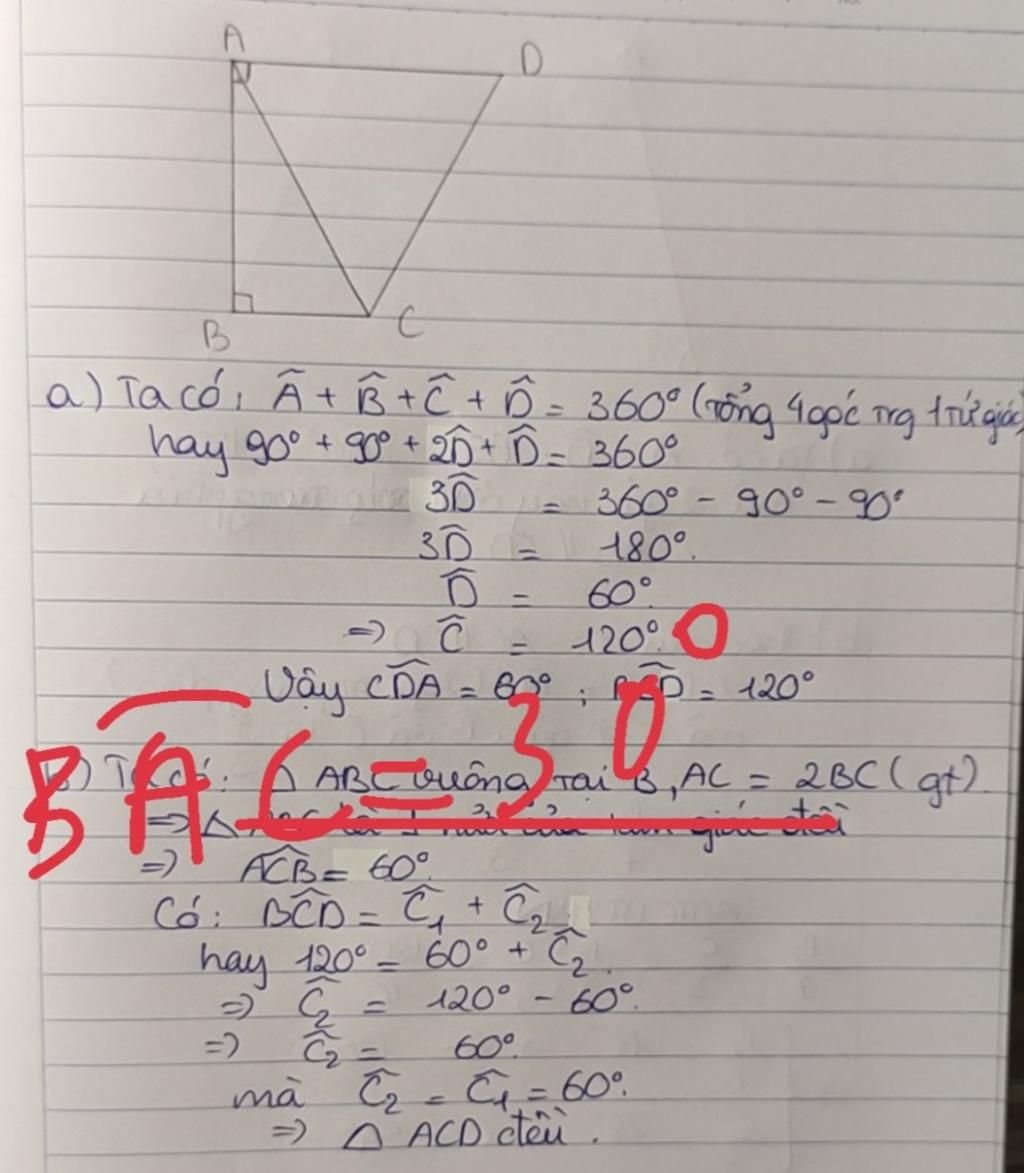 A
D
B
C
a) Ta có, Â + B̂ + Ĉ + D̂ = 360° (tổng 4 góc trg 1 tứ giác)
hay 90° + 90° + 2D̂ + D̂ = 360°
3D̂ = 360° - 90° - 90°
3D̂ = 180°.
D̂ = 60°.
=> Ĉ = 120°. O
Vậy CD̂A = 60° ; BĈD = 120°
BÂC = 30
b) Ta có: Δ ABC vuông tại B, AC = 2BC (gt)
=> Δ ABC là 1 nửa của tam giác đều
=> AĈB = 60°.
Có: BĈD = Ĉ₁ + Ĉ₂
hay 120° = 60° + Ĉ₂.
=> Ĉ₂ = 120° - 60°.
=> Ĉ₂ = 60°.
mà Ĉ₂ = Ĉ₁ = 60°.
=> Δ ACD đều.